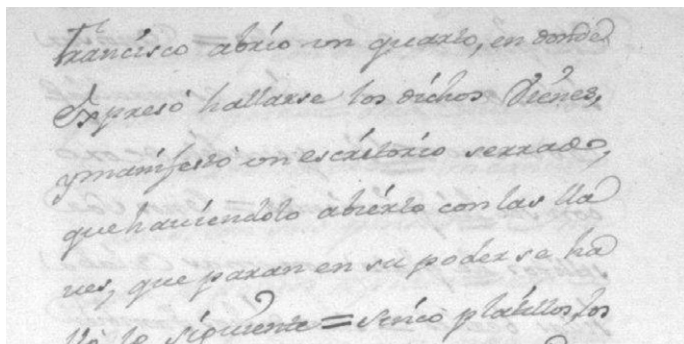 Francisco abrio un quarto, en donde
Expresó hallarse los dichos Vienes,
ymanifestó un escritorio serrado,
que haviendolo abierto con las lla
ves, que paran en su poder se ha
lló lo siguiente = sinco platillos, los